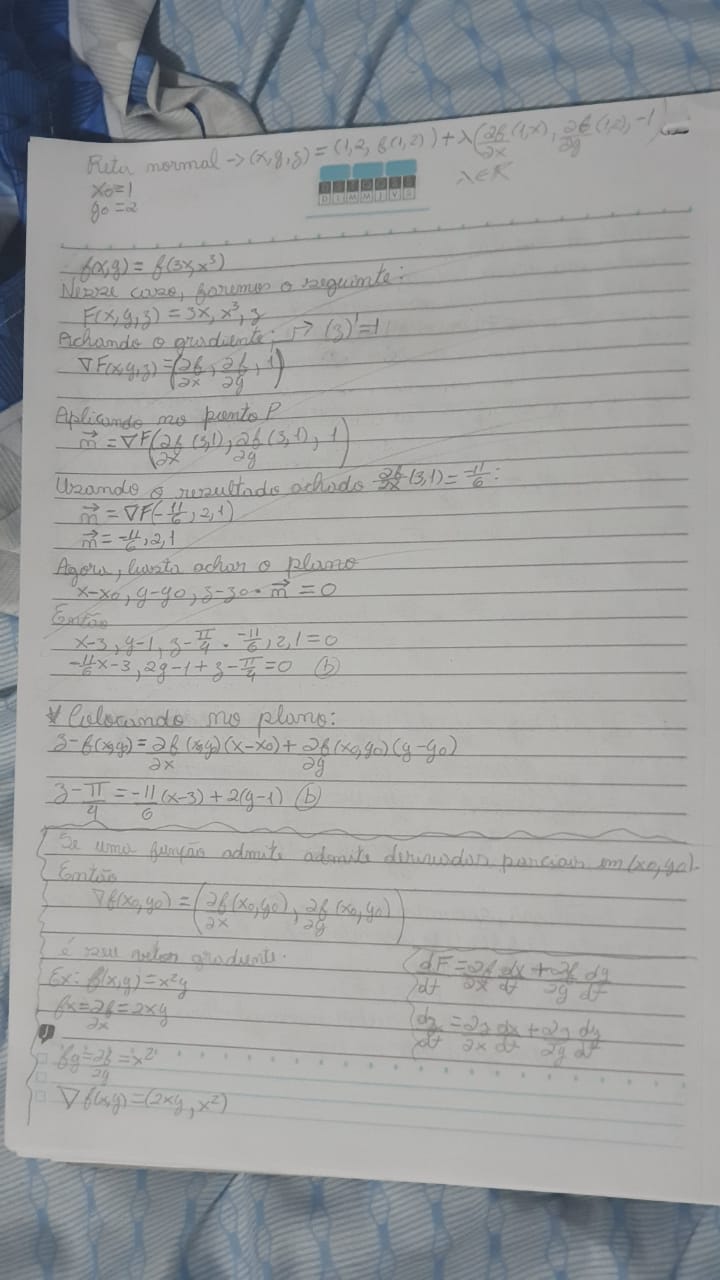 Reta normal -> (x,y,z) = (1,2, f(1,2)) + λ(∂f/∂x (1,x), ∂f/∂y (1,2), -1)
x0=1
λ∈R
y0=2
f(x,y) = f(3x,x³)
Nesse caso, faremos o seguinte:
F(x,y,z) = 3x, x³, z
Achando o gradiente: ↦ (z)'=1
∇F(x,y,z) = (∂f/∂x, ∂f/∂y, 1)
Aplicando no ponto P
n⃗ = ∇F(∂f/∂x (3,1), ∂f/∂y (3,1), 1)
Usando o resultado achado ∂f/∂x (3,1) = -11/6:
n⃗ = ∇F(-11/6, 2, 1)
n⃗ = -11/6, 2, 1
Agora, basta achar o plano
x-x0, y-y0, z-z0 · n⃗ = 0
Então
x-3, y-1, z-π/4 · -11/6, 2, 1 = 0
-11/6x-3, 2y-1+z-π/4=0 (b)
* Colocando no plano:
z-f(x0,y0) = ∂f/∂x (x0,y0)(x-x0) + ∂f/∂y (x0,y0)(y-y0)
z-π/4 = -11/6 (x-3) + 2(y-1) (b)
Se uma função admite admite derivadas parciais em (x0,y0).
Então
∇f(x0,y0) = (∂f/∂x (x0,y0), ∂f/∂y (x0,y0))
é seu vetor gradiente.
Ex: f(x,y)=x²y
fx=∂f/∂x=2xy
fy=∂f/∂y=x²
∇f(x,y)=(2xy, x²)
dF/dt = ∂f/∂x dx/dt + ∂f/∂y dy/dt
dz/dt = ∂z/∂x dx/dt + ∂z/∂y dy/dt